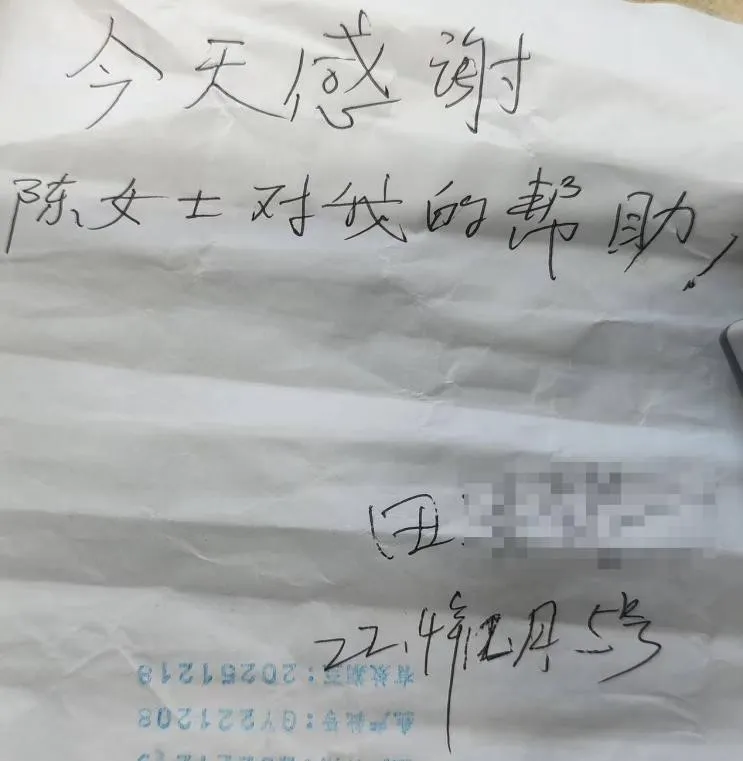 今天感谢
陈女士对我的帮助!
田
22.年12月5号
有效期至:20251218
生产批号:GY221208